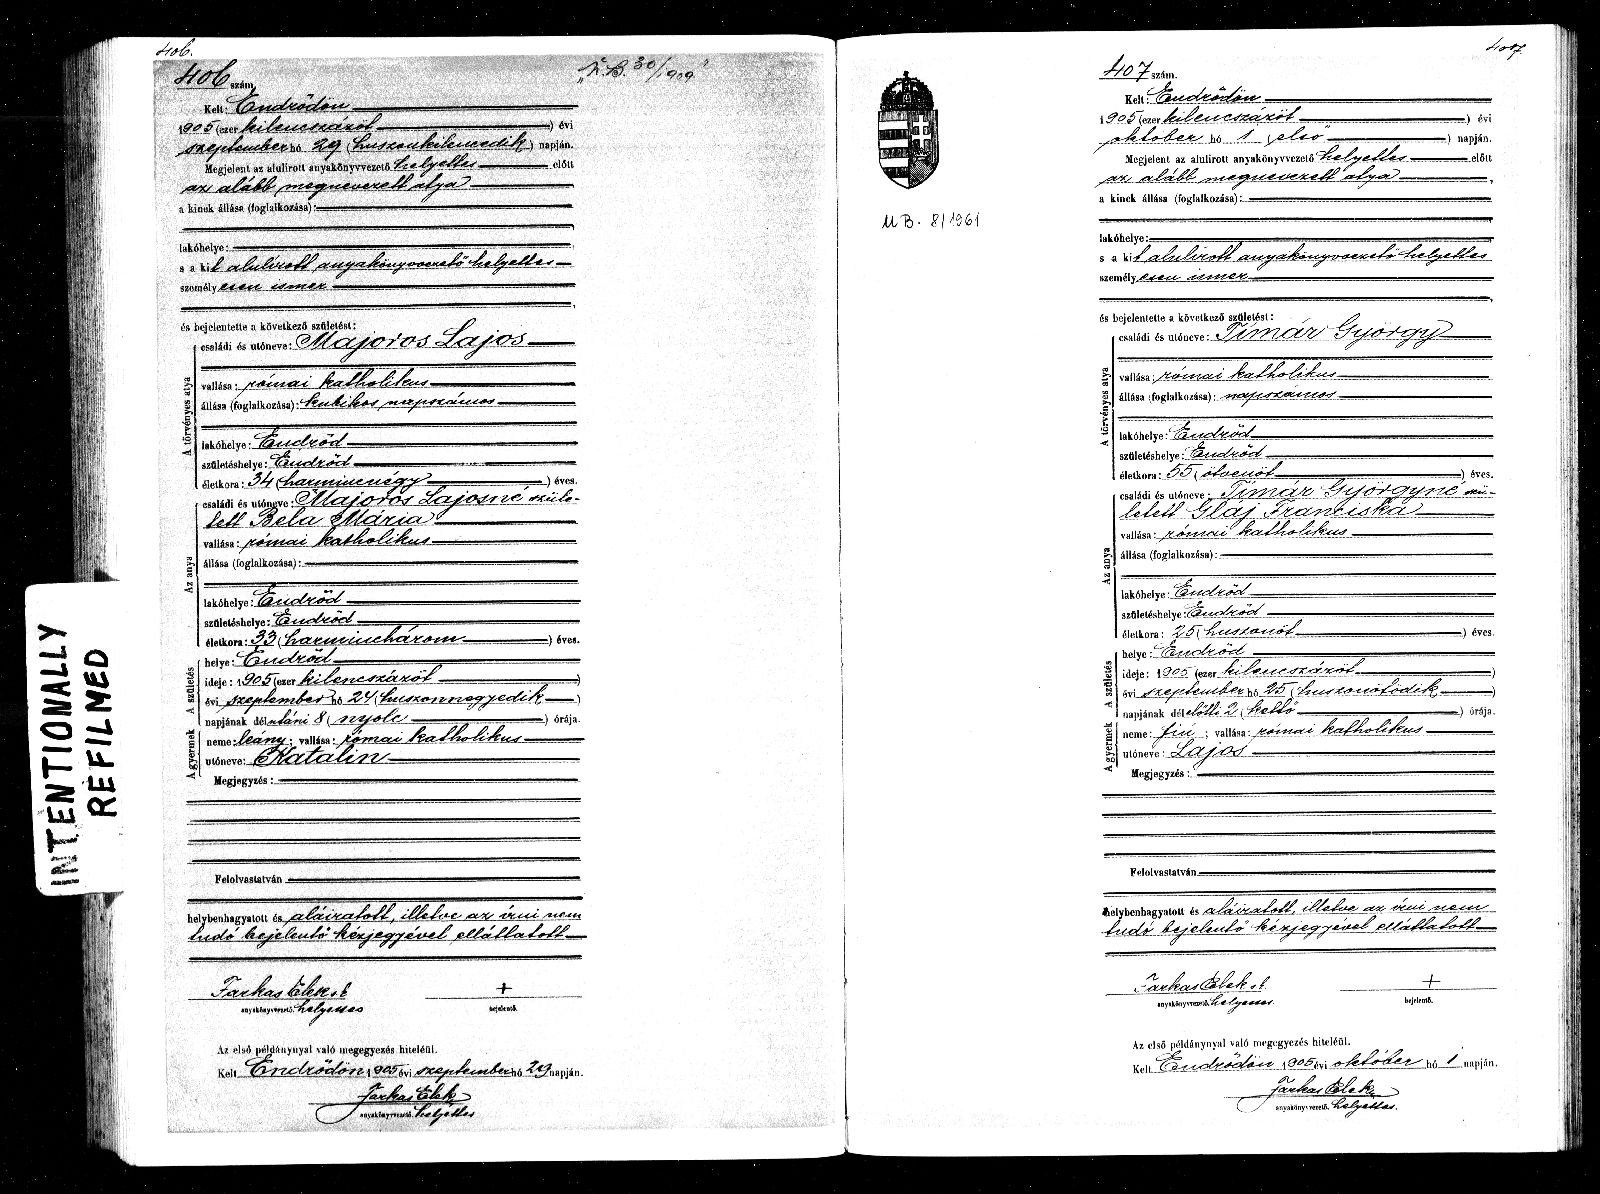 406.
406 szám.
"K.B. 30/1909"
Kelt: Endrődön
1905 (ezer kilenczszázöt) évi
szeptember hó 29 (huszonkilenczedik) napján.
Megjelent az alulirott anyakönyvvezető helyettes előtt
az alább megnevezett atya
a kinek állása (foglalkozása):
lakóhelye:
s a kit alulirott anyakönyvvezető helyettes
személyesen ismer
és bejelentette a következő születést:
A törvényes atya
családi és utóneve: Majoros Lajos
vallása: római katholikus
állása (foglalkozása): kubikos napszámos
lakóhelye: Endrőd
születéshelye: Endrőd
életkora: 34 (harmincnégy) éves.
Az anya
családi és utóneve: Majoros Lajosné szüle-
tett Bela Mária
vallása: római katholikus
állása (foglalkozása):
lakóhelye: Endrőd
születéshelye: Endrőd
életkora: 33 (harminchárom) éves.
A születés
helye: Endrőd
ideje: 1905 (ezer kilenczszázöt)
évi szeptember hó 24 (huszonnegyedik)
napjának délutáni 8 (nyolc) órája.
A gyermek
neme: leány; vallása: római katholikus
utóneve: Katalin
Megjegyzés:
Felolvastatván
helybenhagyatott és aláiratott, illetve az írni nem
tudó bejelentő kézjegyével elláttatott
Farkas Elek s. k. +
anyakönyvvezető. helyettes bejelentő.
Az első példánynyal való megegyezés hiteléül.
Kelt Endrődön 1905 évi szeptember hó 29 napján.
Farkas Elek
anyakönyvvezető. helyettes
INTENTIONALLY
REFILMED
407
M B. 8/1961
407 szám.
Kelt: Endrődön
1905 (ezer kilenczszázöt) évi
október hó 1 (első) napján.
Megjelent az alulirott anyakönyvvezető helyettes előtt
az alább megnevezett atya,
a kinek állása (foglalkozása):
lakóhelye:
s a kit alulirott anyakönyvvezető helyettes
személyesen ismer
és bejelentette a következő születést:
A törvényes atya
családi és utóneve: Tímár György
vallása: római katholikus
állása (foglalkozása): napszámos
lakóhelye: Endrőd
születéshelye: Endrőd
életkora: 55 (ötvenöt) éves.
Az anya
családi és utóneve: Tímár Györgyné szü-
letett Glaj Franciska
vallása: római katholikus
állása (foglalkozása):
lakóhelye: Endrőd
születéshelye: Endrőd
életkora: 25 (huszonöt) éves.
A születés
helye: Endrőd
ideje: 1905 (ezer kilenczszázöt)
évi szeptember hó 25 (huszonötödik)
napjának délelőtti 2 (kettő) órája.
A gyermek
neme: fiu; vallása: római katholikus
utóneve: Lajos
Megjegyzés:
Felolvastatván
helybenhagyatott és aláiratott, illetve az írni nem
tudó bejelentő kézjegyével elláttatott
Farkas Elek s. k. +
anyakönyvvezető. helyettes. bejelentő.
Az első példánynyal való megegyezés hiteléül.
Kelt Endrődön 1905 évi október hó 1 napján.
Farkas Elek
anyakönyvvezető. helyettes.